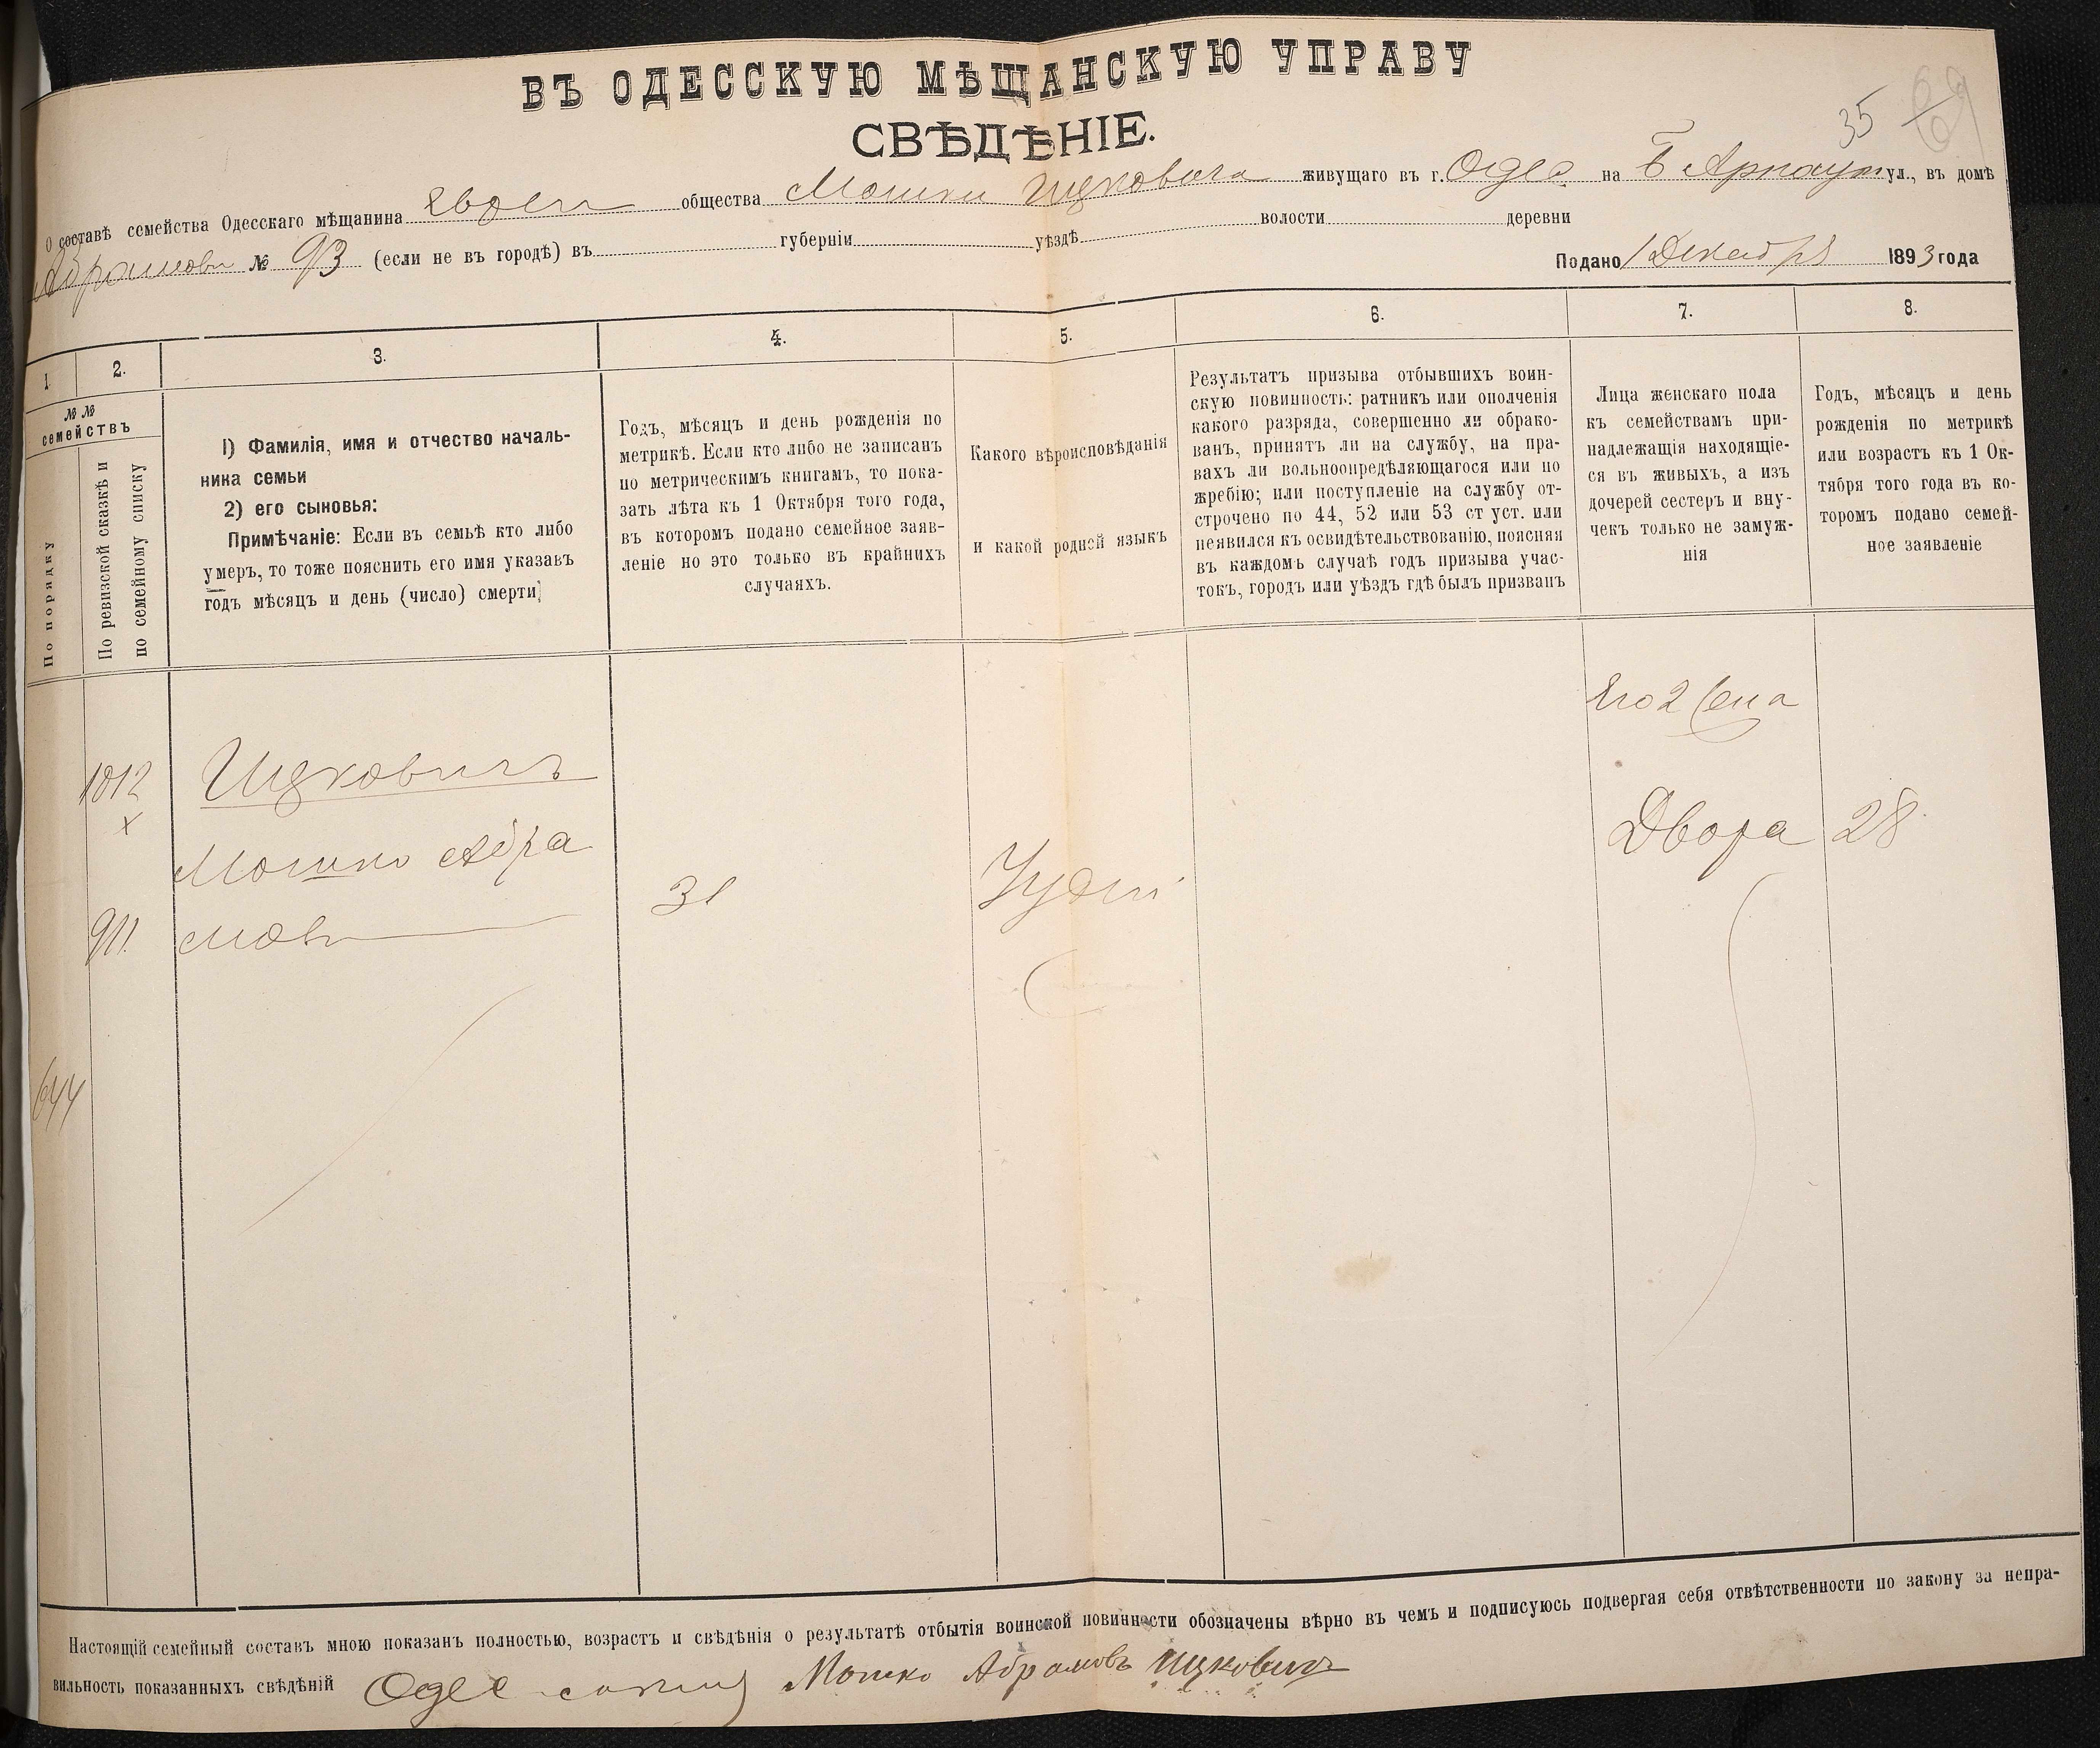 ВЪ ОДЕССКУЮ МѢЩАНСКУЮ УПРАВУ
СВѢДѢНІЕ.
35
69
О составѣ семейства Одесскаго мѣщанина общества Мошки Ицковича живущаго въ г. Одес. на Б Арнаут ул., въ домѣ
Абрамова № 93 (если не въ городѣ) въ губерніи уѣздѣ волости деревни
Подано 1 Декабря 1893 года
1. 2. 3. 4. 5. 6. 7. 8.
№ №
семействъ
По порядку
По ревизской сказкѣ и
по семейному списку
1) Фамилія, имя и отчество началь-
ника семьи
2) его сыновья:
Примѣчаніе: Если въ семьѣ кто либо
умеръ, то тоже пояснить его имя указавъ
годъ мѣсяцъ и день (число) смерти.
Годъ, мѣсяцъ и день рожденія по
метрикѣ. Если кто либо не записанъ
по метрическимъ книгамъ, то пока-
зать лѣта къ 1 Октября того года,
въ которомъ подано семейное заяв-
леніе но это только въ крайнихъ
случаяхъ.
Какого вѣроисповѣданія
и какой родной языкъ
Результатъ призыва отбывшихъ воин-
скую повинность: ратникъ или ополченія
какого разряда, совершенно ли обрако-
ванъ, принятъ ли на службу, на пра-
вахъ ли вольноопредѣляющагося или по
жребію; или поступленіе на службу от-
строчено по 44, 52 или 53 ст уст. или
неявился къ освидѣтельствованію, поясняя
въ каждомъ случаѣ годъ призыва учас-
токъ, городъ или уѣздъ гдѣ былъ призванъ
Лица женскаго пола
къ семействамъ при-
надлежащія находящіе-
ся въ живыхъ, а изъ
дочерей сестеръ и вну-
чекъ только не замуж-
нія
Годъ, мѣсяцъ и день
рожденія по метрикѣ
или возрастъ къ 1 Ок-
тября того года въ ко-
торомъ подано семей-
ное заявленіе
Его 2 жена
1012 Ицковичъ
х
Мошко Абра Двора 28
911. мовъ 31 Іудей
644
Настоящій семейный составъ мною показанъ полностью, возрастъ и свѣдѣнія о результатѣ отбытія воинской повинности обозначены вѣрно въ чемъ и подписуюсь подвергая себя отвѣтственности по закону за непра-
вильность показанныхъ свѣдѣній Мошко Абрамовъ Ицковичъ